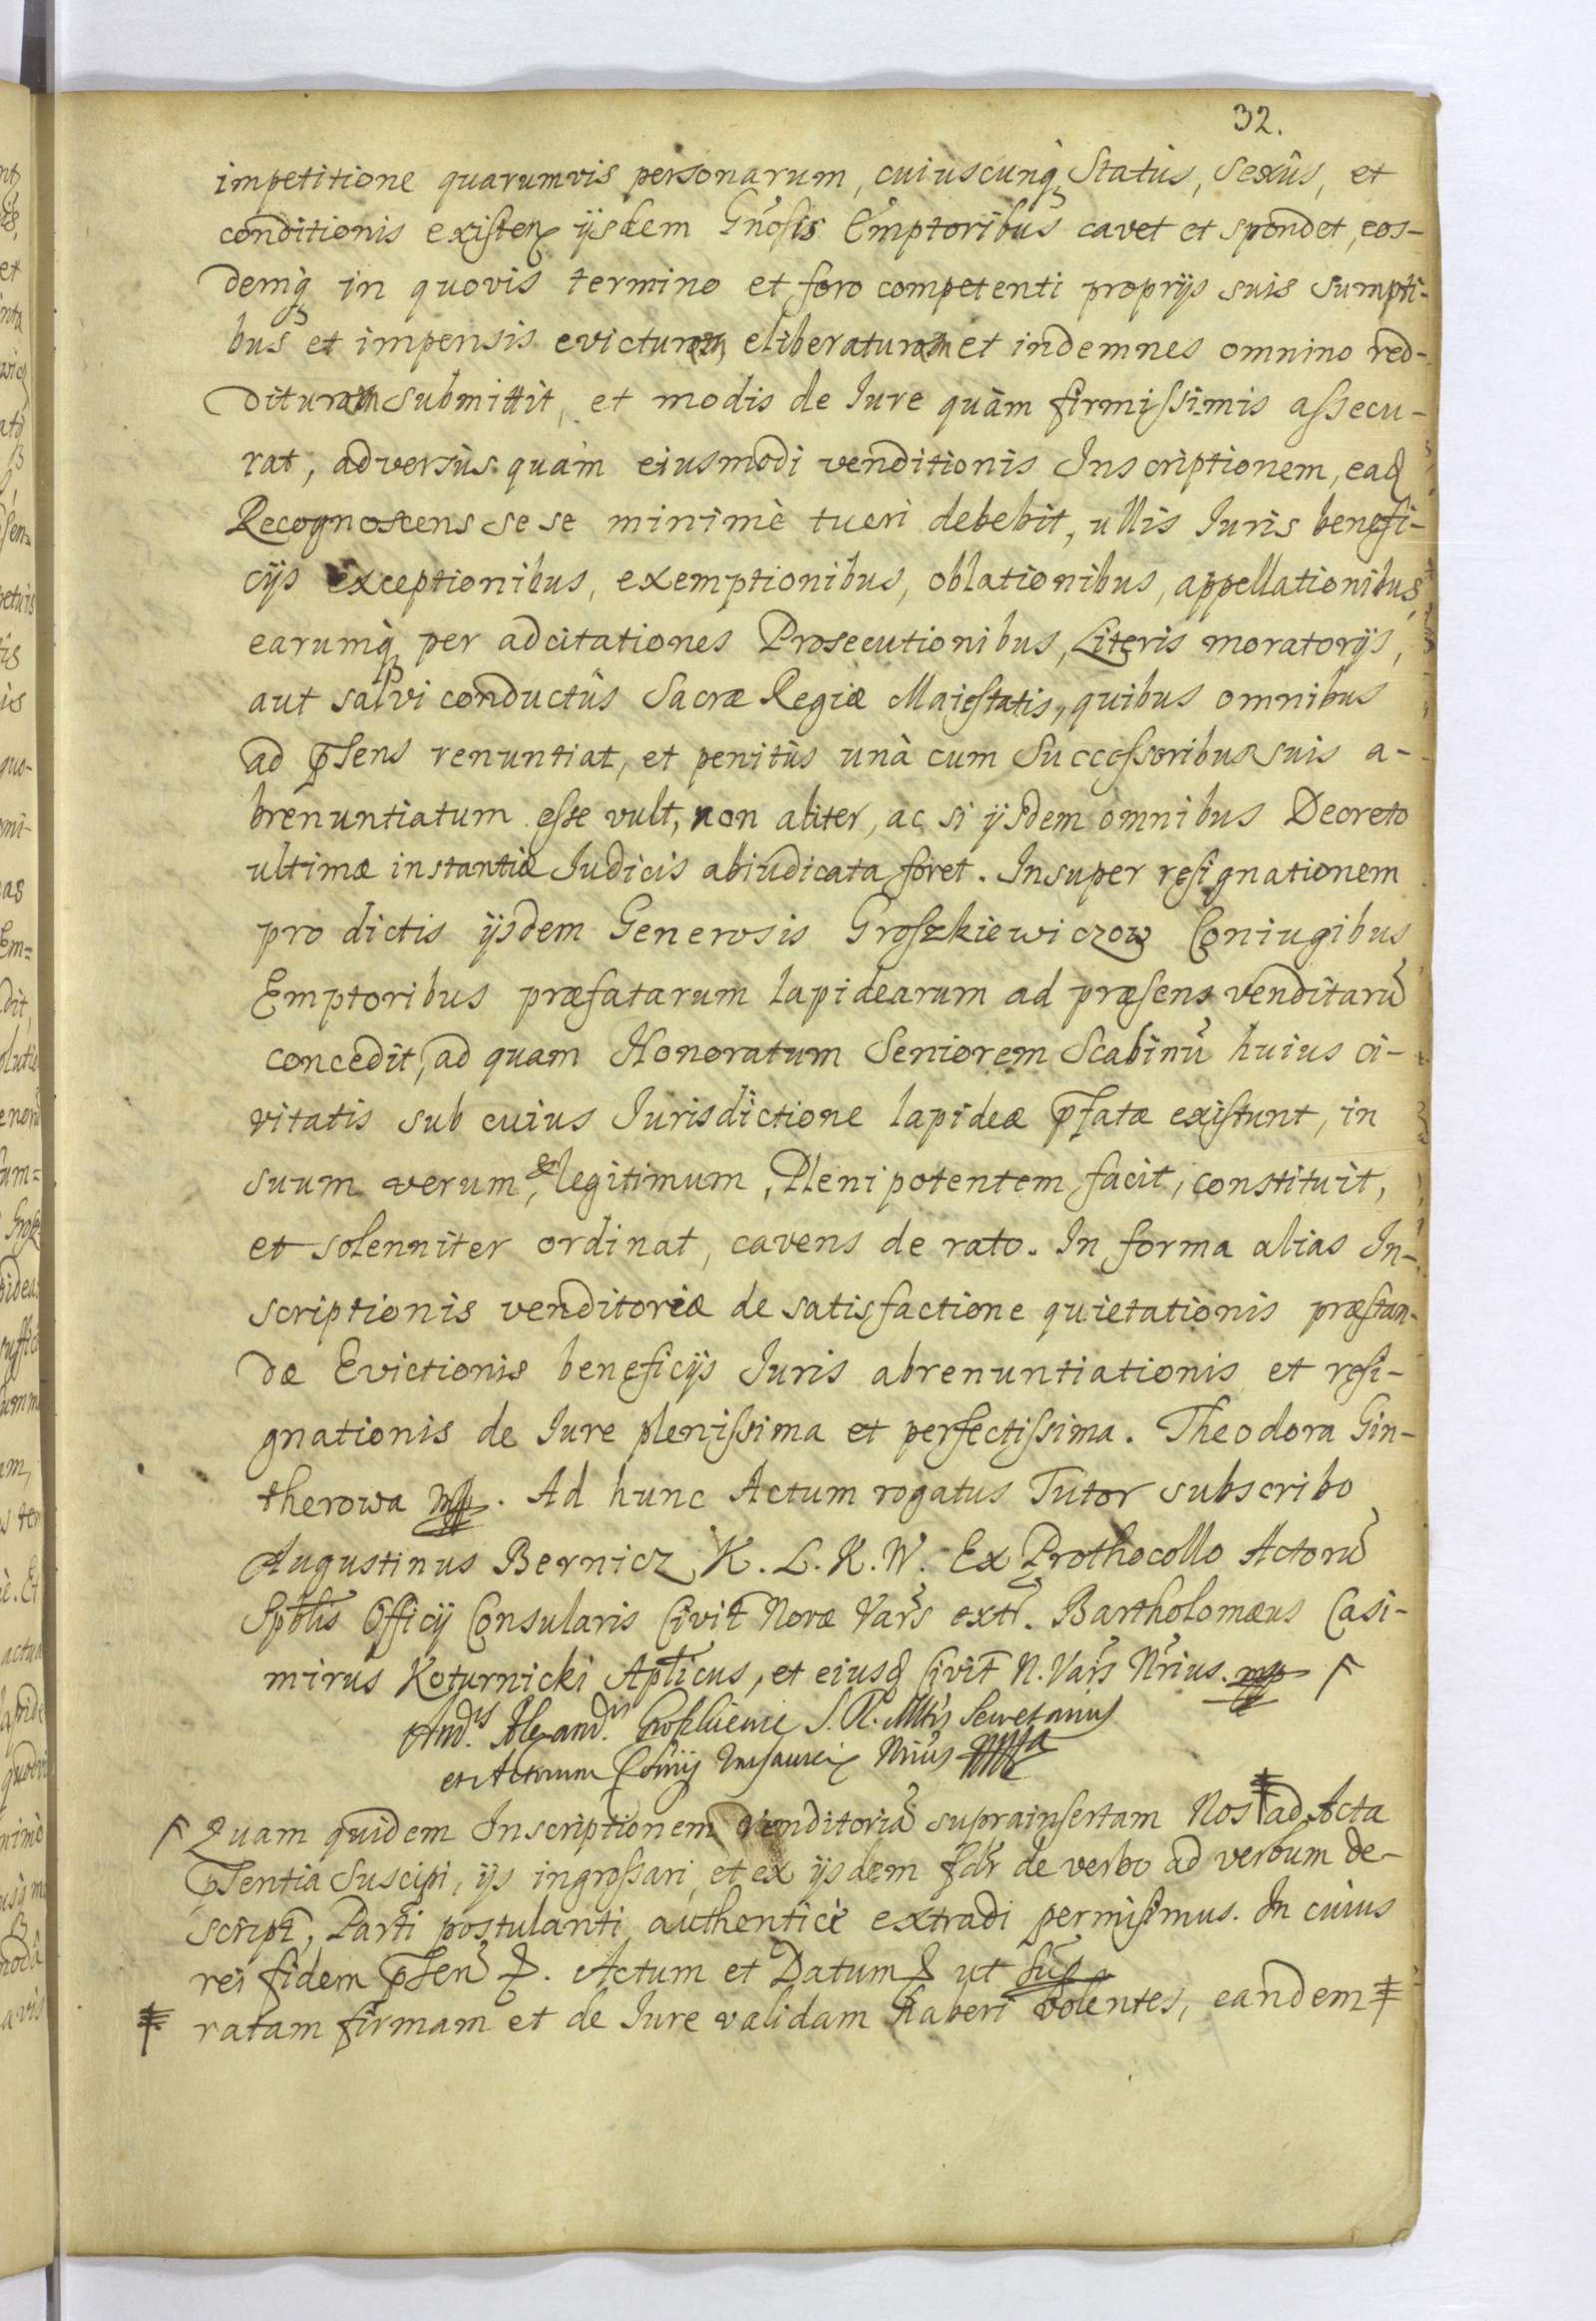 32.
impetitione quarumvis personarum, cuiuscunq, Statûs, Sexûs, et
conditionis existen ijsdem Gnosis Emptoribus cavet et spondet, eos-
demq in quovis termino et foro competenti proprijs suis sumpti-
bus et impensis evicturam eliberaturam et indemnes omnino red-
dituram submittit, et modis de Iure quàm firmissimis assecu-
rat, adversùs quam eiusmodi venditionis Inscriptionem, ead
Recognoscens se se minimè tueri debebit, ullis Iuris benefi-
cijs exceptionibus, exemptionibus, oblationibus, appellationibus,
earumq per adcitationes Prosecutionibus, Literis moratorijs,
aut salvi conductûs Sacræ Regiæ Maiestatis, quibus omnibus
ad psens renuntiat, et penitùs unà cum Successoribus suis a-
brenuntiatum esse vult, non aliter, ac si ijsdem omnibus Decreto
ultimæ instantiæ Iudicis abiudicata foret. Insuper resignationem
pro dictis ijsdem Generosis Groszkiewiczow Coniugibus
Emptoribus præfatarum lapidearum ad præsens venditarũ
concedit, ad quam Honoratum Seniorem Scabinũ huius ci-
vitatis sub cuius Iurisdictione lapideæ pfatæ existunt, in
suum verum, & legitimum, Plenipotentem facit, constituit,
et solenniter ordinat, cavens de rato. In forma alias In-
scriptionis venditoriæ de satisfactione quietationis præstan-
dæ Evictionis beneficijs Iuris abrenuntiationis et resi-
gnationis de Iure plenissima et perfectissima. Theodora Gin-
therowa mp. Ad hunc Actum rogatus Tutor subscribo
Augustinus Bernicz, K. L. K. W. Ex Prothocollo Actorũ
Spblis Officij Consularis Civit Novæ Vars extr. Bartholomæus Casi-
mirus Koturnicki Aplicus, et eiusd Civit N. Vars Nrius. mp
S. R. Mtis Secretarius
et Actorum Nrius
Quam quidem Inscriptionem venditoriã suprainsertam Nos ‡ ad Acta
psentia Suscipi, ijs ingrossari, et ex ijsdem de verbo ad verbum de-
script, Parti postulanti authenticè extradi permisimus. In cuius
rei fidem psen. Actum et Datum ut sup
‡ ratam firmam et de Iure validam haberi volentes, eandem ‡